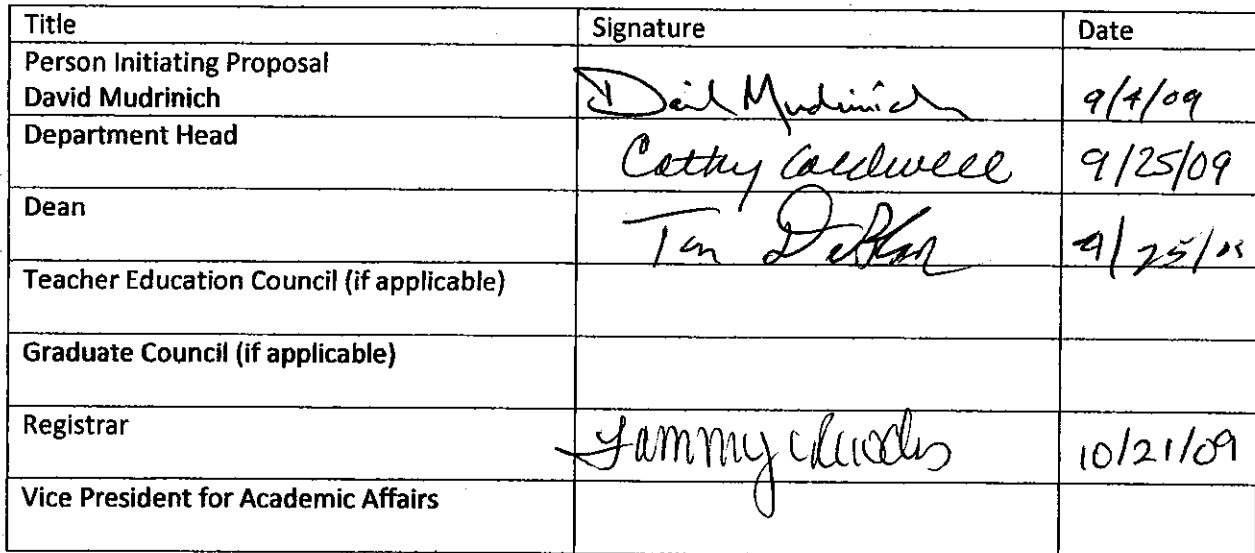 Title Signature Date
Person Initiating Proposal
David Mudrinich David Mudrinich 9/4/09
Department Head Cathy Caldwell 9/25/09
Dean Tom DeBlack 9/25/09
Teacher Education Council (if applicable)
Graduate Council (if applicable)
Registrar Tammy Rhodes 10/21/09
Vice President for Academic Affairs